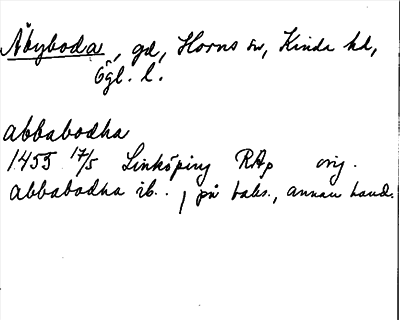 Åbyboda, gd, Horns sn, Kinda hd,
Ögl. l.
abbabodha
1455 17/5 Linköping RAp orig.
abbabodha ib., på baks., annan hand.